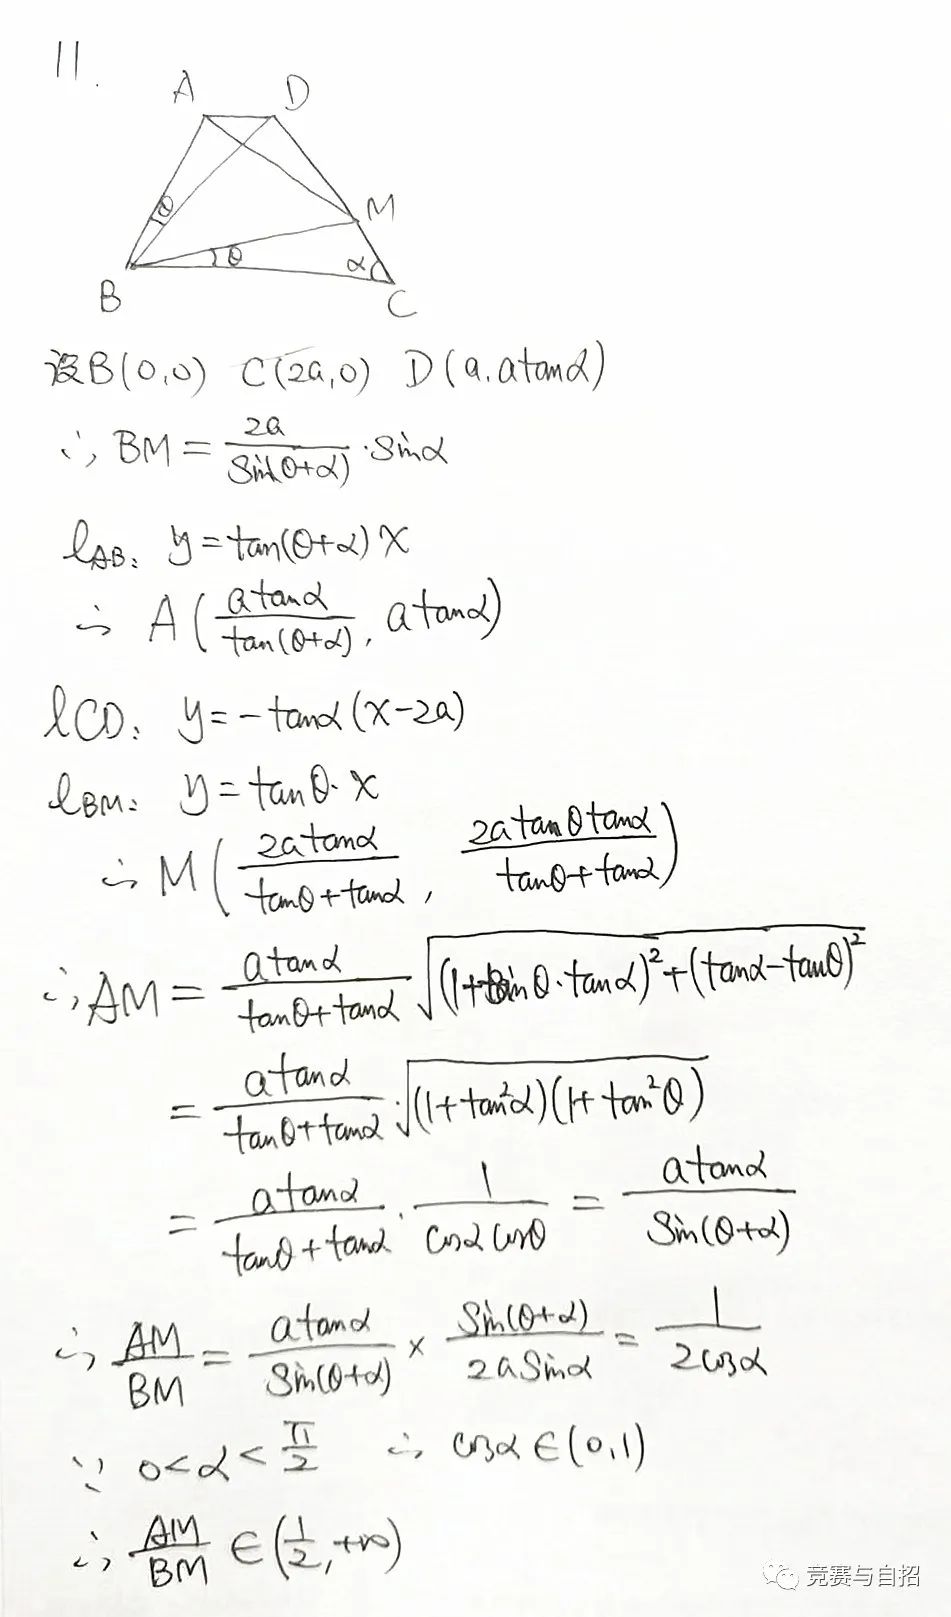 11.
A D
θ M
θ α
B C
设B(0,0) C(2a,0) D(a.atanα)
∴ BM = \frac{2a}{Sin(θ+α)}·Sinα
l_{AB}: y=tan(θ+α)x
∴ A(\frac{atanα}{tan(θ+α)}, atanα)
lCD: y=-tanα(x-2a)
l_{BM}: y=tanθ·x
∴ M(\frac{2atanα}{tanθ+tanα}, \frac{2atanθtanα}{tanθ+tanα})
∴ AM = \frac{atanα}{tanθ+tanα}\sqrt{(1+tanθ·tanα)^2+(tanα-tanθ)^2}
= \frac{atanα}{tanθ+tanα}·\sqrt{(1+tan^2α)(1+tan^2θ)}
= \frac{atanα}{tanθ+tanα}·\frac{1}{cosαcosθ} = \frac{atanα}{Sin(θ+α)}
∴ \frac{AM}{BM} = \frac{atanα}{Sin(θ+α)} × \frac{Sin(θ+α)}{2aSinα} = \frac{1}{2cosα}
∵ 0<α<\frac{π}{2} ∴ cosα∈(0,1)
∴ \frac{AM}{BM}∈(\frac{1}{2},+∞)
竞赛与自招